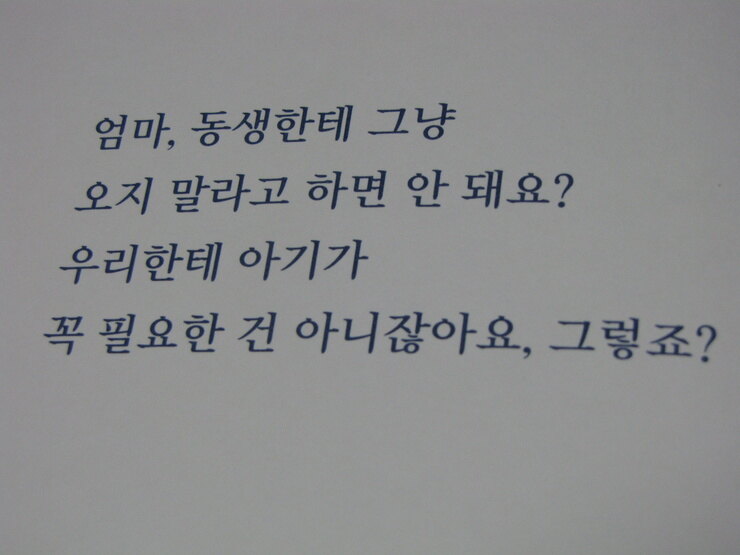 엄마, 동생한테 그냥
오지 말라고 하면 안 돼요?
우리한테 아기가
꼭 필요한 건 아니잖아요, 그렇죠?